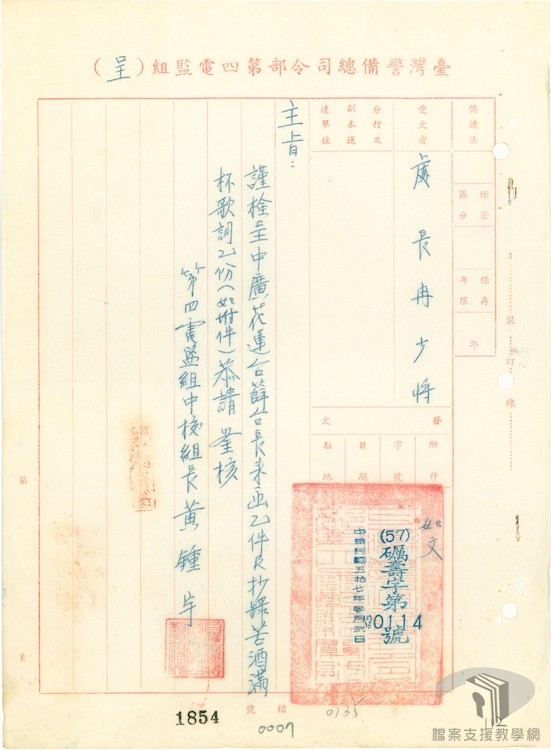 臺灣警備總司令部第四電監組(呈)
傳遞法
保密區分
保存年限
受文者
處長冉少將
分行及副本送達單位
發文
附件
如文
字號
(57)礪壽字第0114號
日期
中華民國五拾七年
駐地
主旨：
謹檢呈中廣花蓮台薛台長來函乙件及抄錄苦酒滿
杯歌詞乙份(如附件)恭請 鑒核
第四電監組中校組長黃鍾宇
裝
訂
線
第
檔號
1854
0007
0135
檔案支援教學網